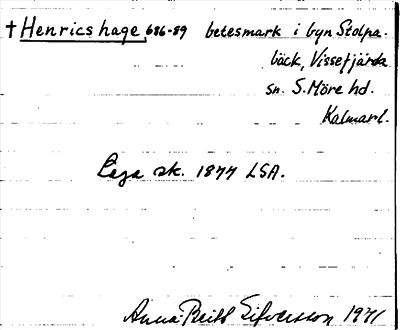 † Henrics hage 686-89 betesmark i byn Stolpa-
bäck, Vissefjärda
sn. S. Möre hd.
Kalmarl.
Laga sk. 1877 LSA.
Anna-Britt Sifversson 1971